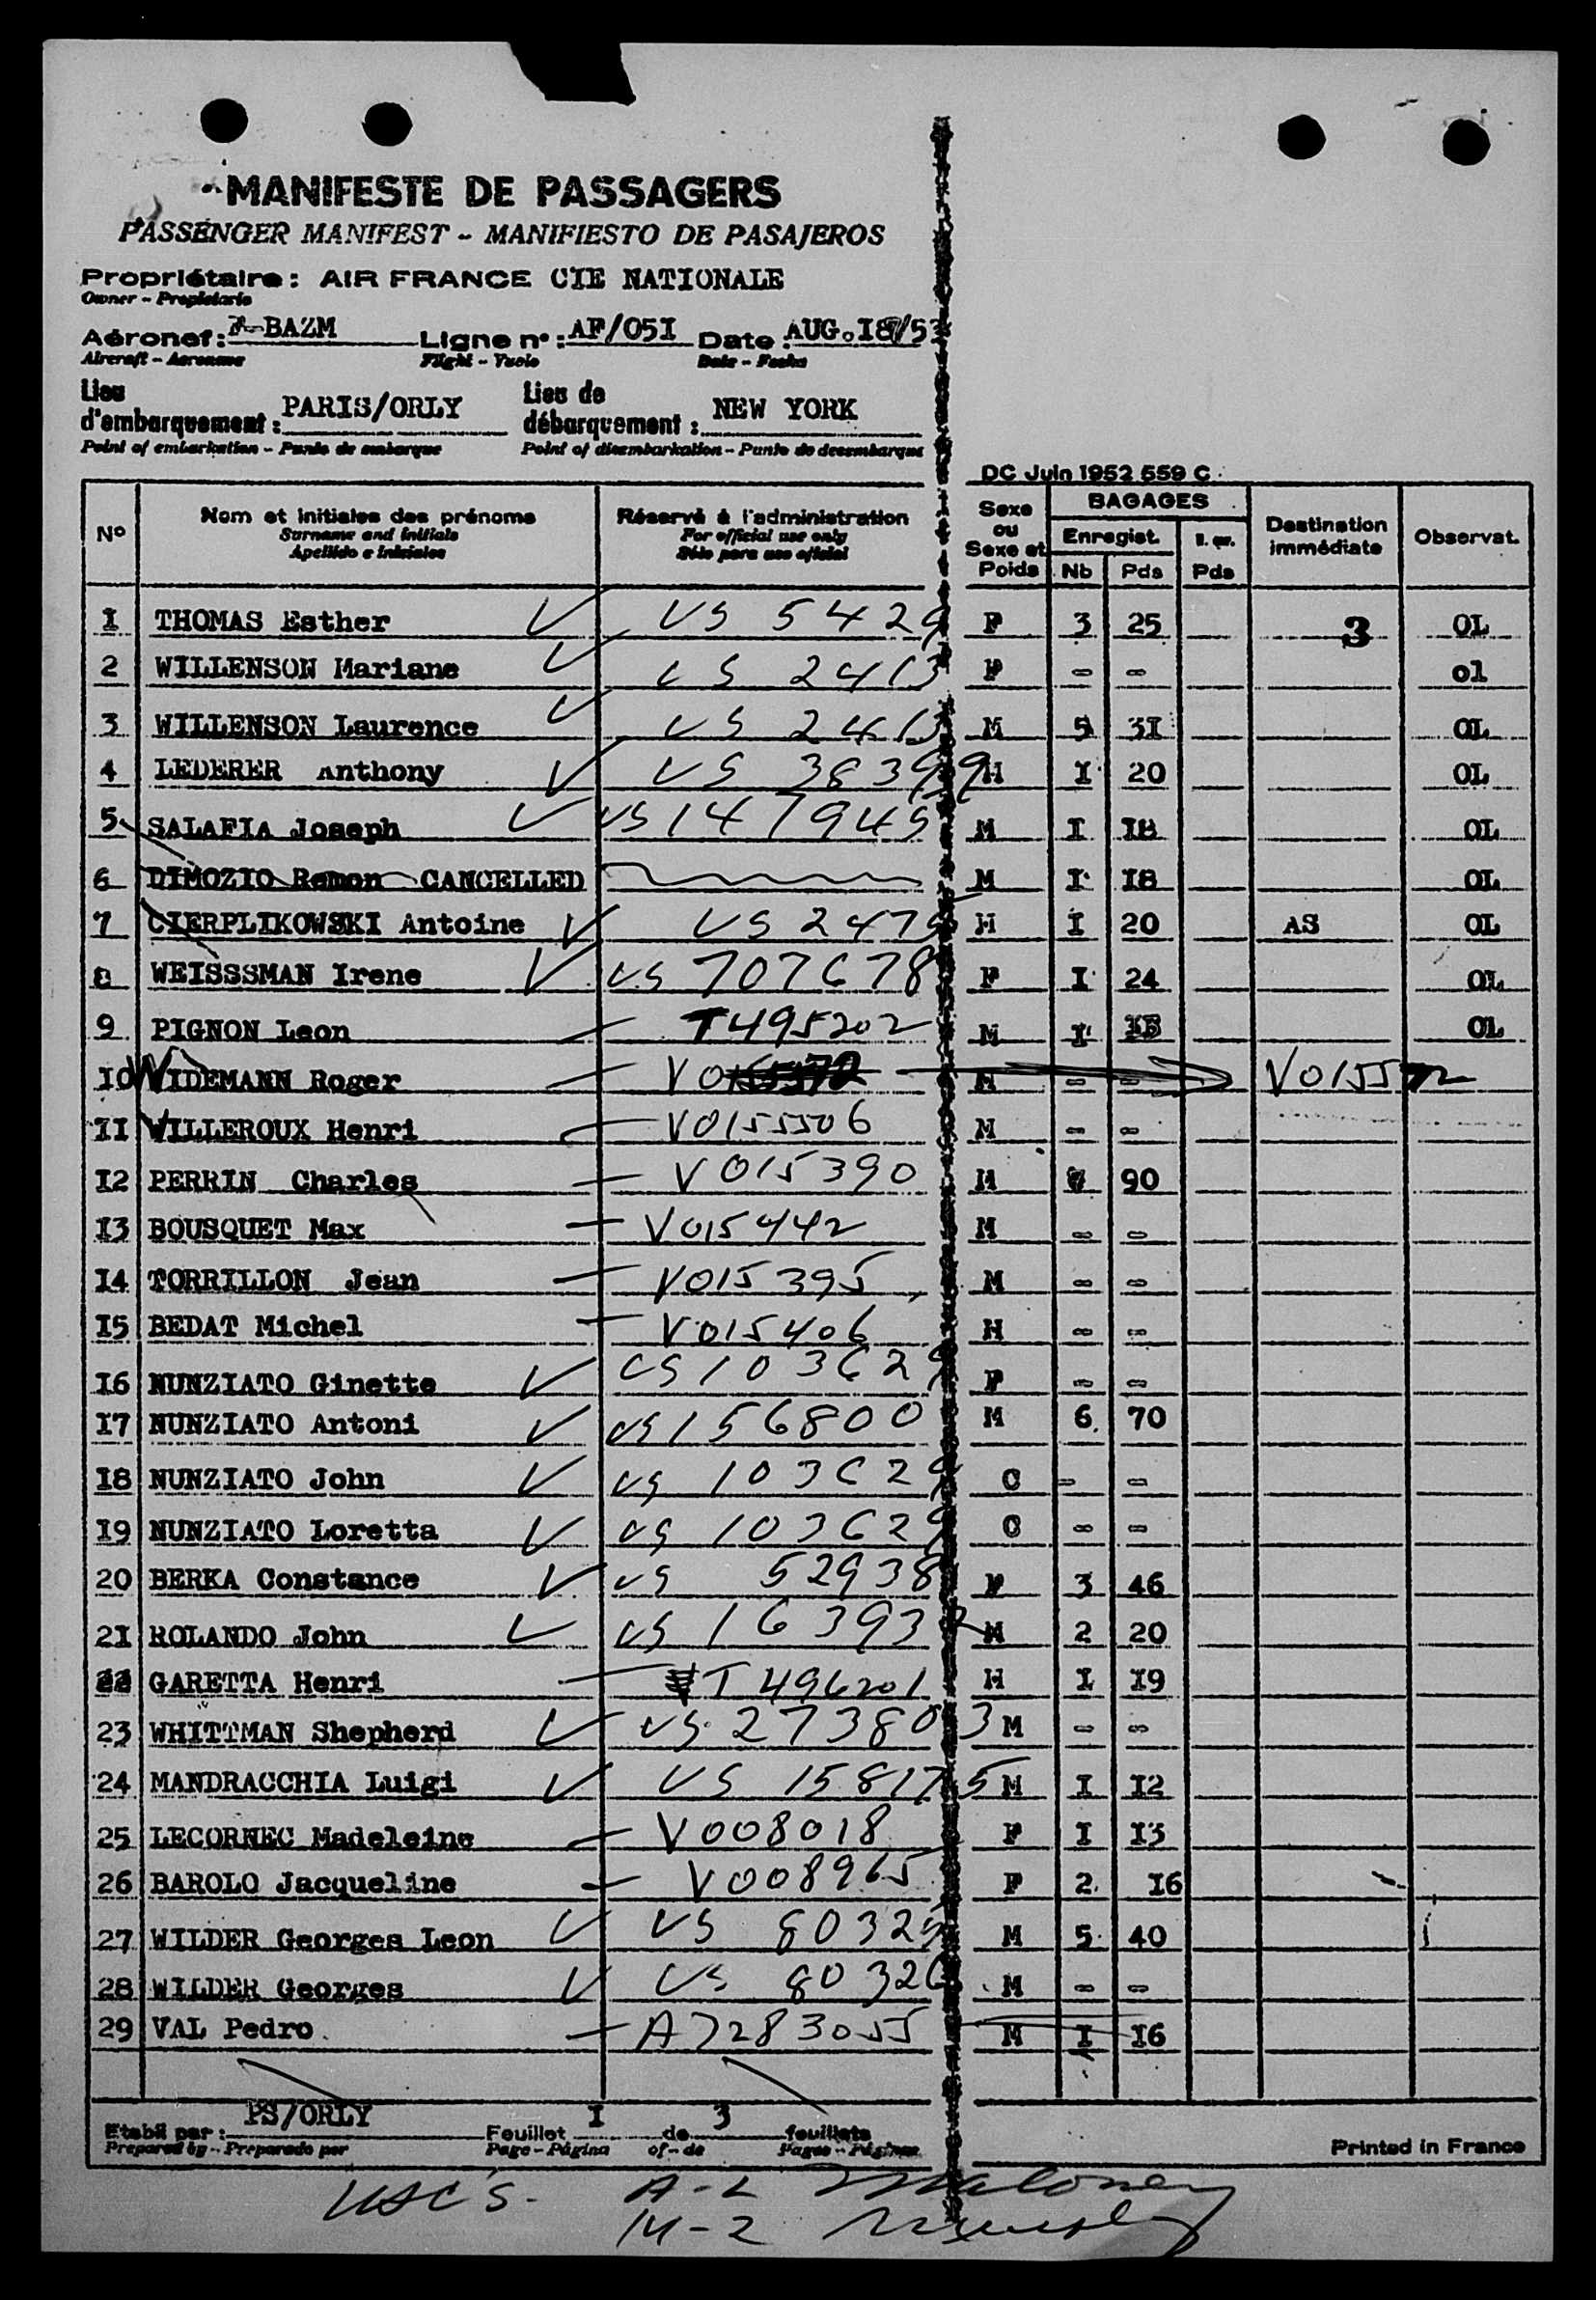 MANIFESTE DE PASSAGERS
PASSENGER MANIFEST - MANIFIESTO DE PASAJEROS
Propriétaire : AIR FRANCE CIE NATIONALE
Owner - Propietario
Aéronef : F-BAZM Ligne n° : AF/05I Date : AUG.I8/53
Aircraft - Aeronave Flight - Vuelo Date - Fecha
Lieu d'embarquement : PARIS/ORLY Lieu de débarquement : NEW YORK
Point of embarkation - Punto de embarque Point of disembarkation - Punto de desembarque
DC Juin 1952 559 C
N° Nom et initiales des prénoms Réservé à l'administration Sexe ou Sexe et Poids BAGAGES Destination immédiate Observat.
Surname and initials For official use only Enregist.
Apellido e iniciales Sólo para uso oficial Nb Pds Pds
I THOMAS Esther US 5429 F 3 25 3 OL
2 WILLENSON Mariane US 2413 F - - ol
3 WILLENSON Laurence US 2413 M 5 3I OL
4 LEDERER Anthony US 38399 H I 20 OL
5 SALAFIA Joseph US 147945 M I I8 OL
6 DIMOZIO Remon CANCELLED M I I8 OL
7 CIERPLIKOWSKI Antoine US 2475 H I 20 AS OL
8 WEISSSMAN Irene US 707678 F I 24 OL
9 PIGNON Leon T495202 M I OL
I0 WIDEMANN Roger M - - V015572
II VILLEROUX Henri V0155506 M - -
I2 PERRIN Charles V015390 M 90
I3 BOUSQUET Max V015442 M - -
I4 TORRILLON Jean V015395 M - -
I5 BEDAT Michel V015406 H - -
I6 NUNZIATO Ginette US 103629 F - -
I7 NUNZIATO Antoni US 156800 M 6 70
I8 NUNZIATO John US 103629 C - -
I9 NUNZIATO Loretta US 103629 C - -
20 BERKA Constance US 52938 F 3 46
2I ROLANDO John US 163932 M 2 20
22 GARETTA Henri T 496201 H I I9
23 WHITTMAN Shepherd US 273803 M - -
24 MANDRACCHIA Luigi US 158175 M I I2
25 LECORNEC Madeleine V008018 F I I3
26 BAROLO Jacqueline V008965 F 2 I6
27 WILDER Georges Leon US 80325 M 5 40
28 WILDER Georges US 80326 M - -
29 VAL Pedro A7283055 M I I6
Etabli par : PS/ORLY Feuillet I de 3 feuillets
Prepared by - Preparado por Page - Página of - de Pages - Páginas
Printed in France
USC'S. A-L Maloney
14-2